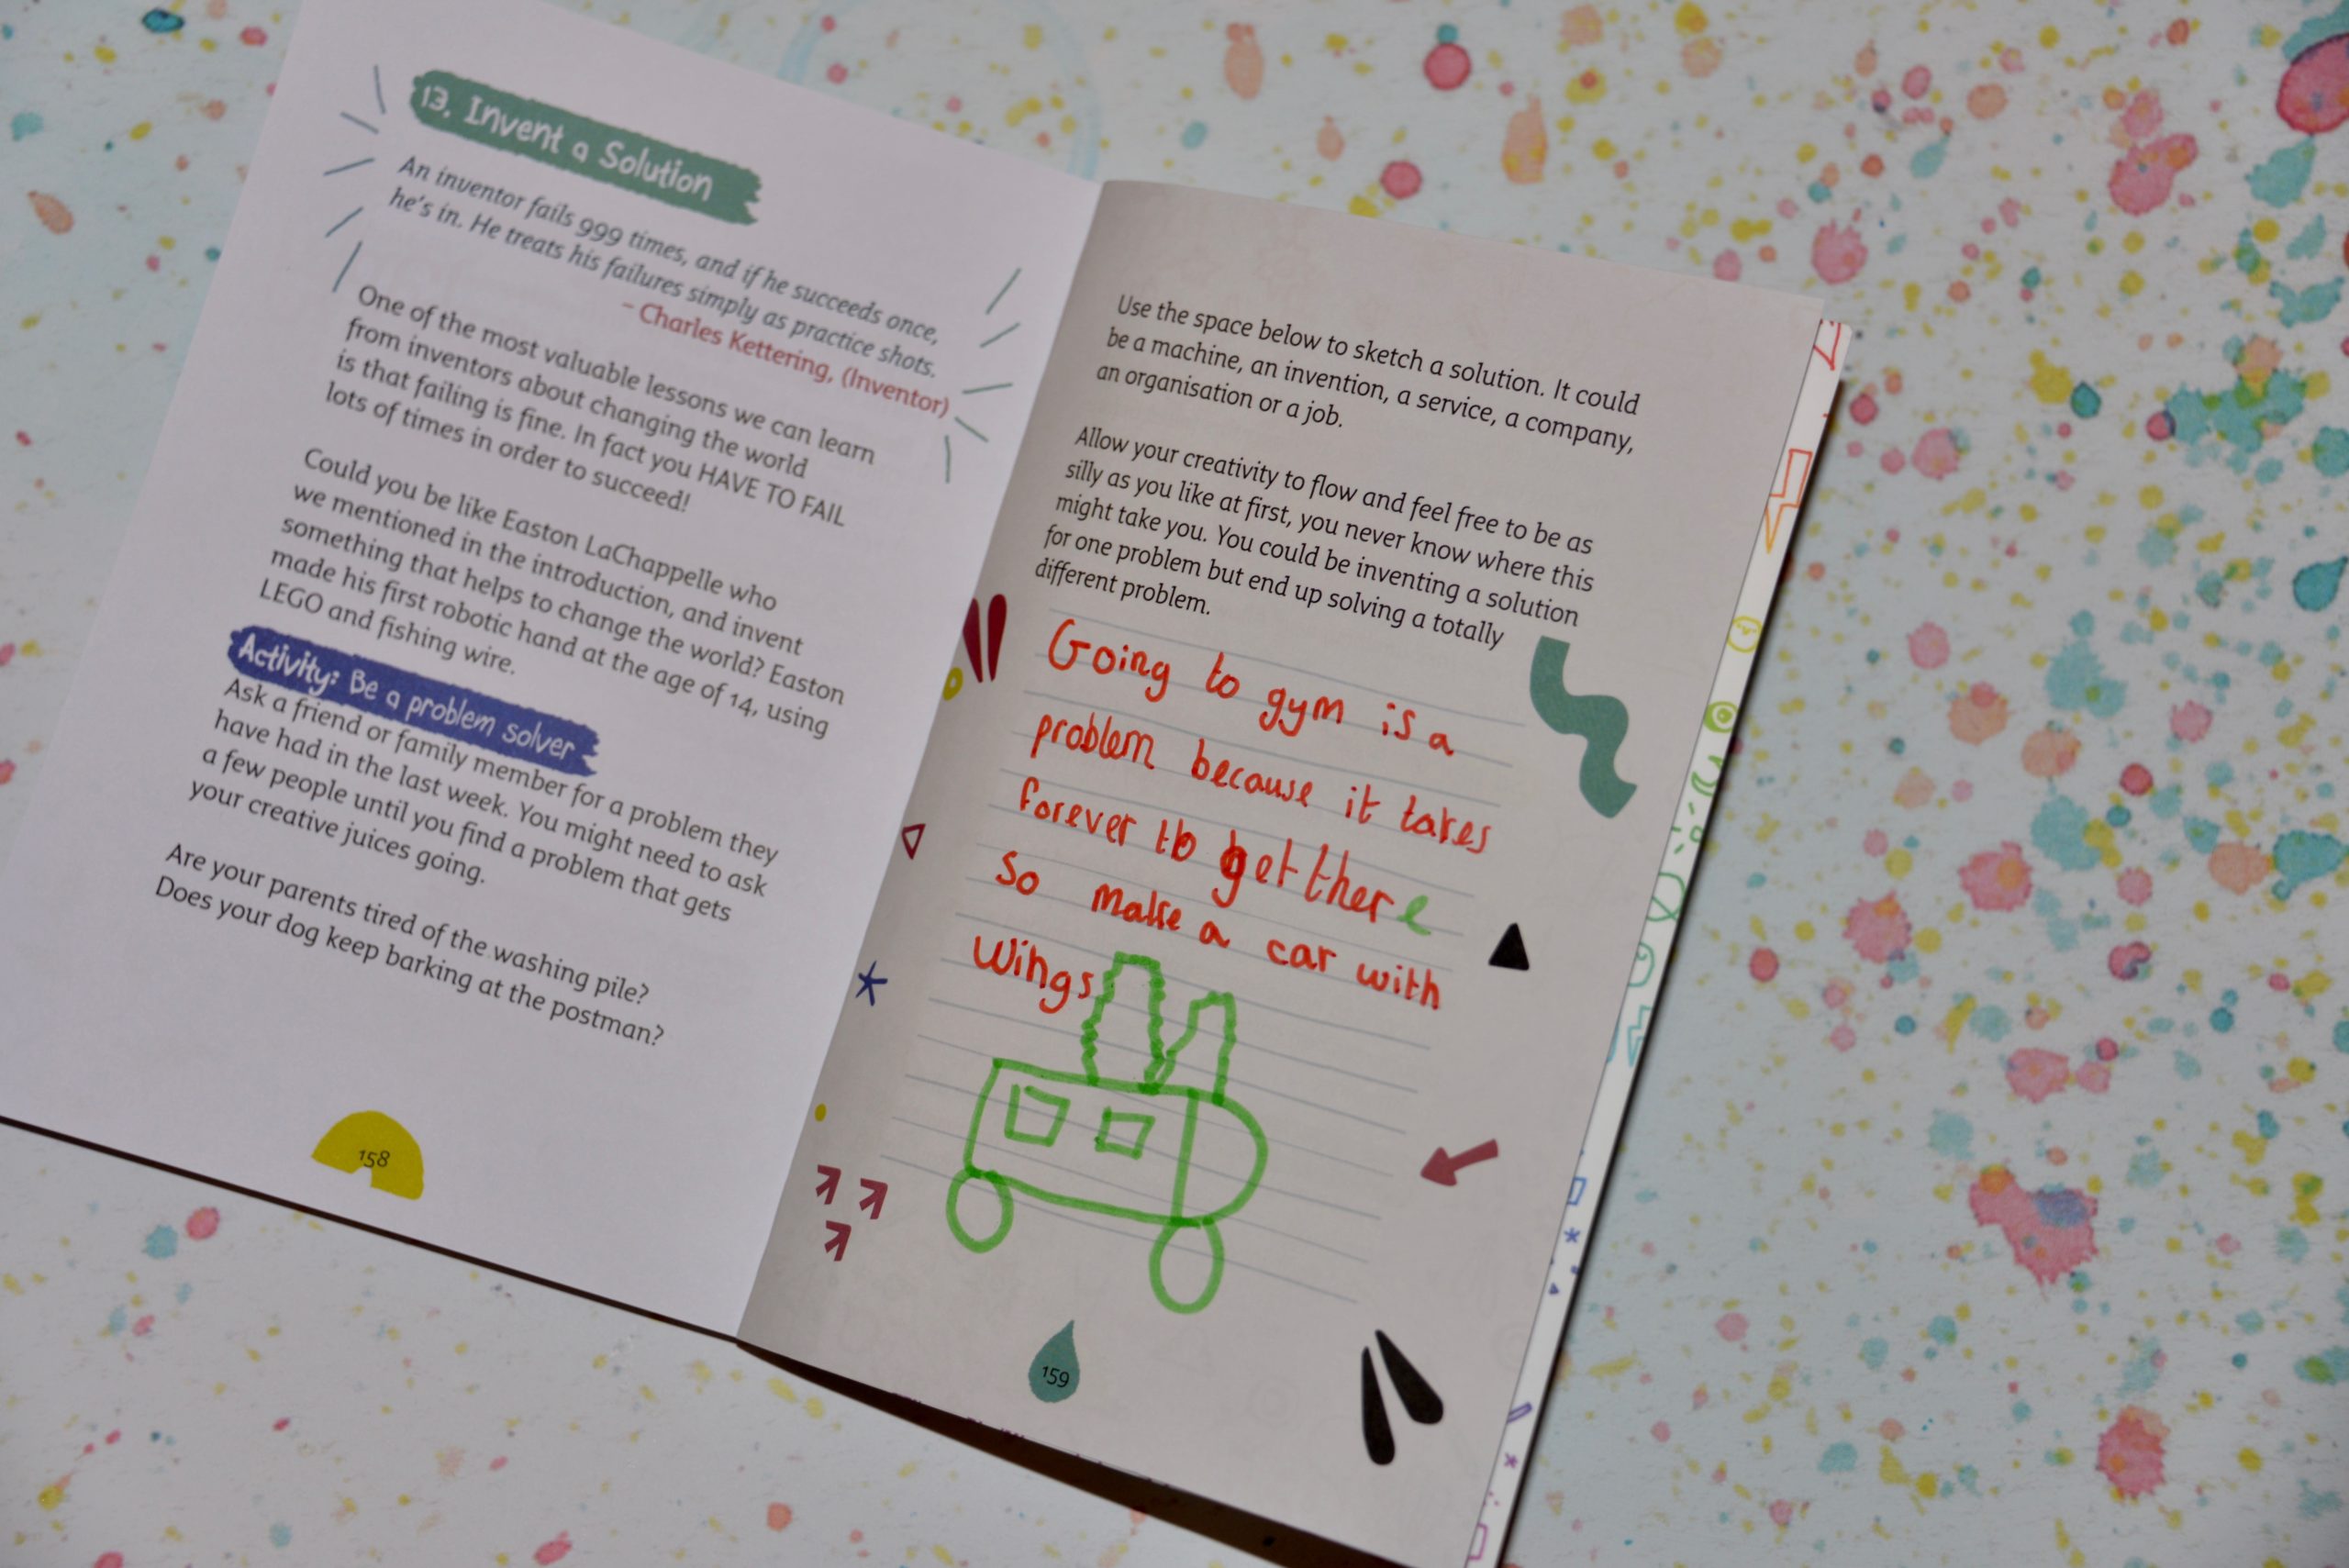 13. Invent a Solution
An inventor fails 999 times, and if he succeeds once,
he's in. He treats his failures simply as practice shots.
– Charles Kettering, (Inventor)
One of the most valuable lessons we can learn
from inventors about changing the world
is that failing is fine. In fact you HAVE TO FAIL
lots of times in order to succeed!
Could you be like Easton LaChappelle who
we mentioned in the introduction, and invent
something that helps to change the world? Easton
made his first robotic hand at the age of 14, using
LEGO and fishing wire.
Activity: Be a problem solver
Ask a friend or family member for a problem they
have had in the last week. You might need to ask
a few people until you find a problem that gets
your creative juices going.
Are your parents tired of the washing pile?
Does your dog keep barking at the postman?
158
Use the space below to sketch a solution. It could
be a machine, an invention, a service, a company,
an organisation or a job.
Allow your creativity to flow and feel free to be as
silly as you like at first, you never know where this
might take you. You could be inventing a solution
for one problem but end up solving a totally
different problem.
Going to gym is a
problem because it takes
forever to get there
So make a car with
Wings
159